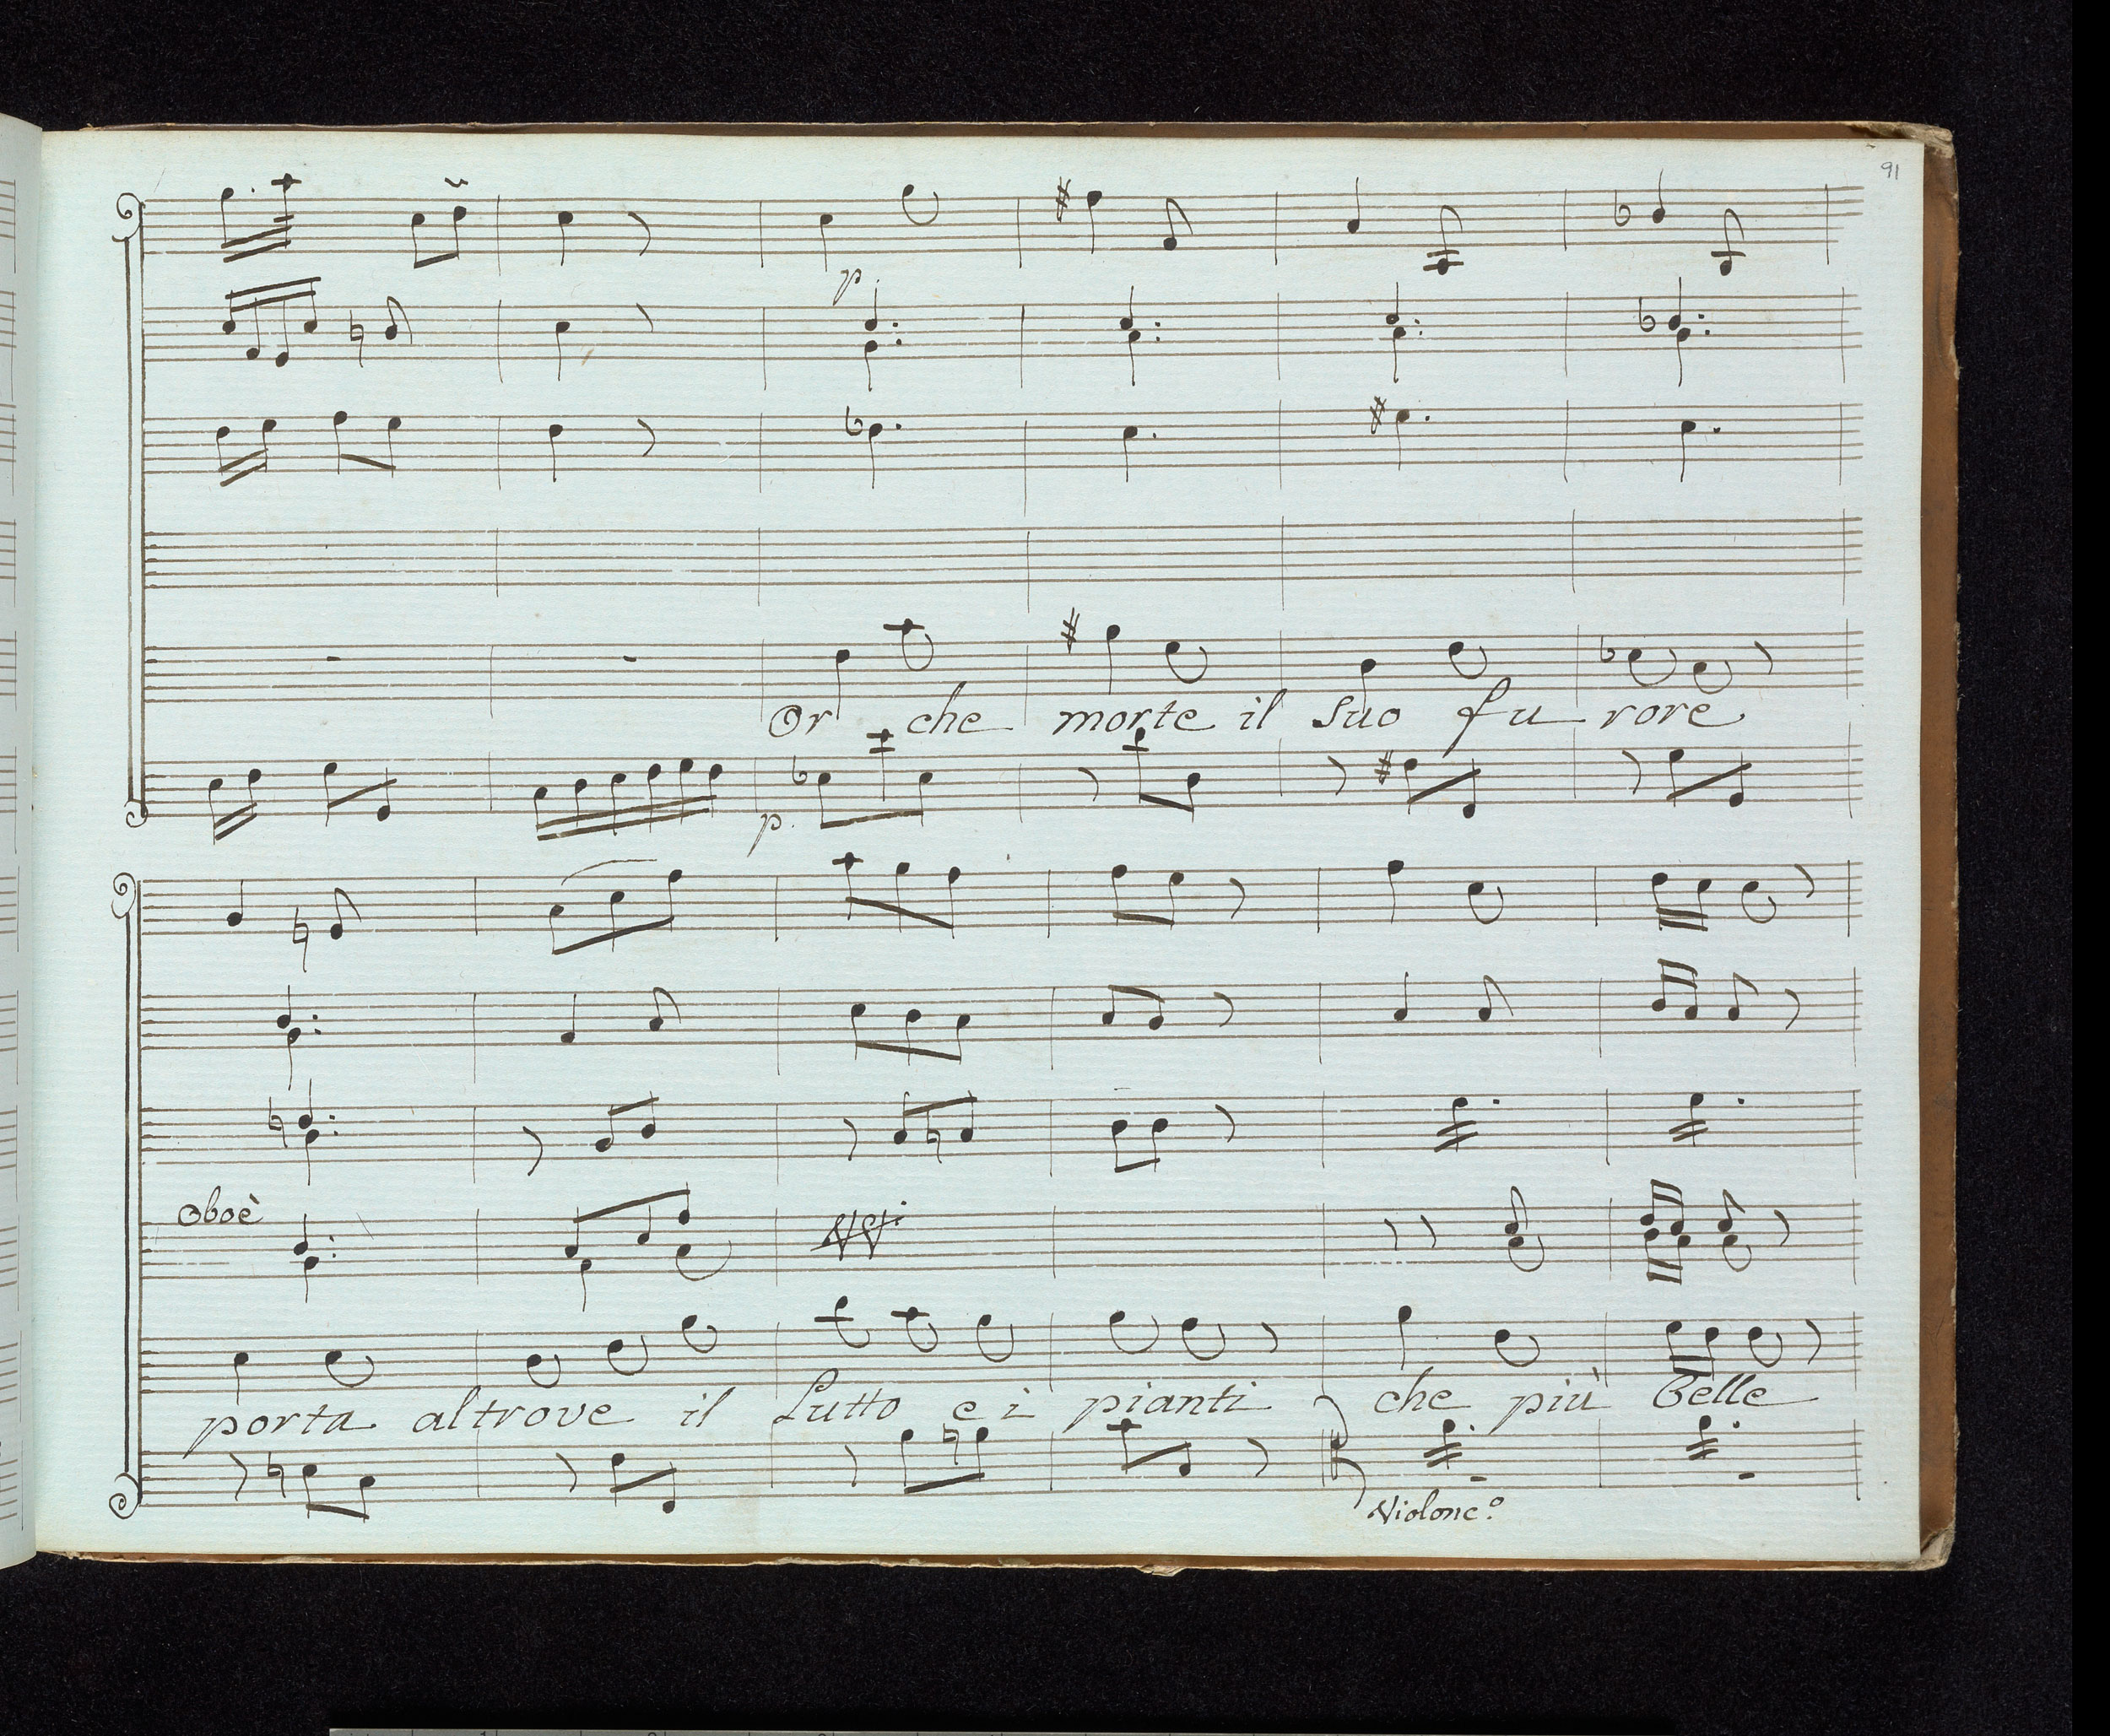 91
p.
Or che morte il suo furore
p.
Oboè
VV.
porta altrove il lutto e i pianti che più belle
Violonc.º